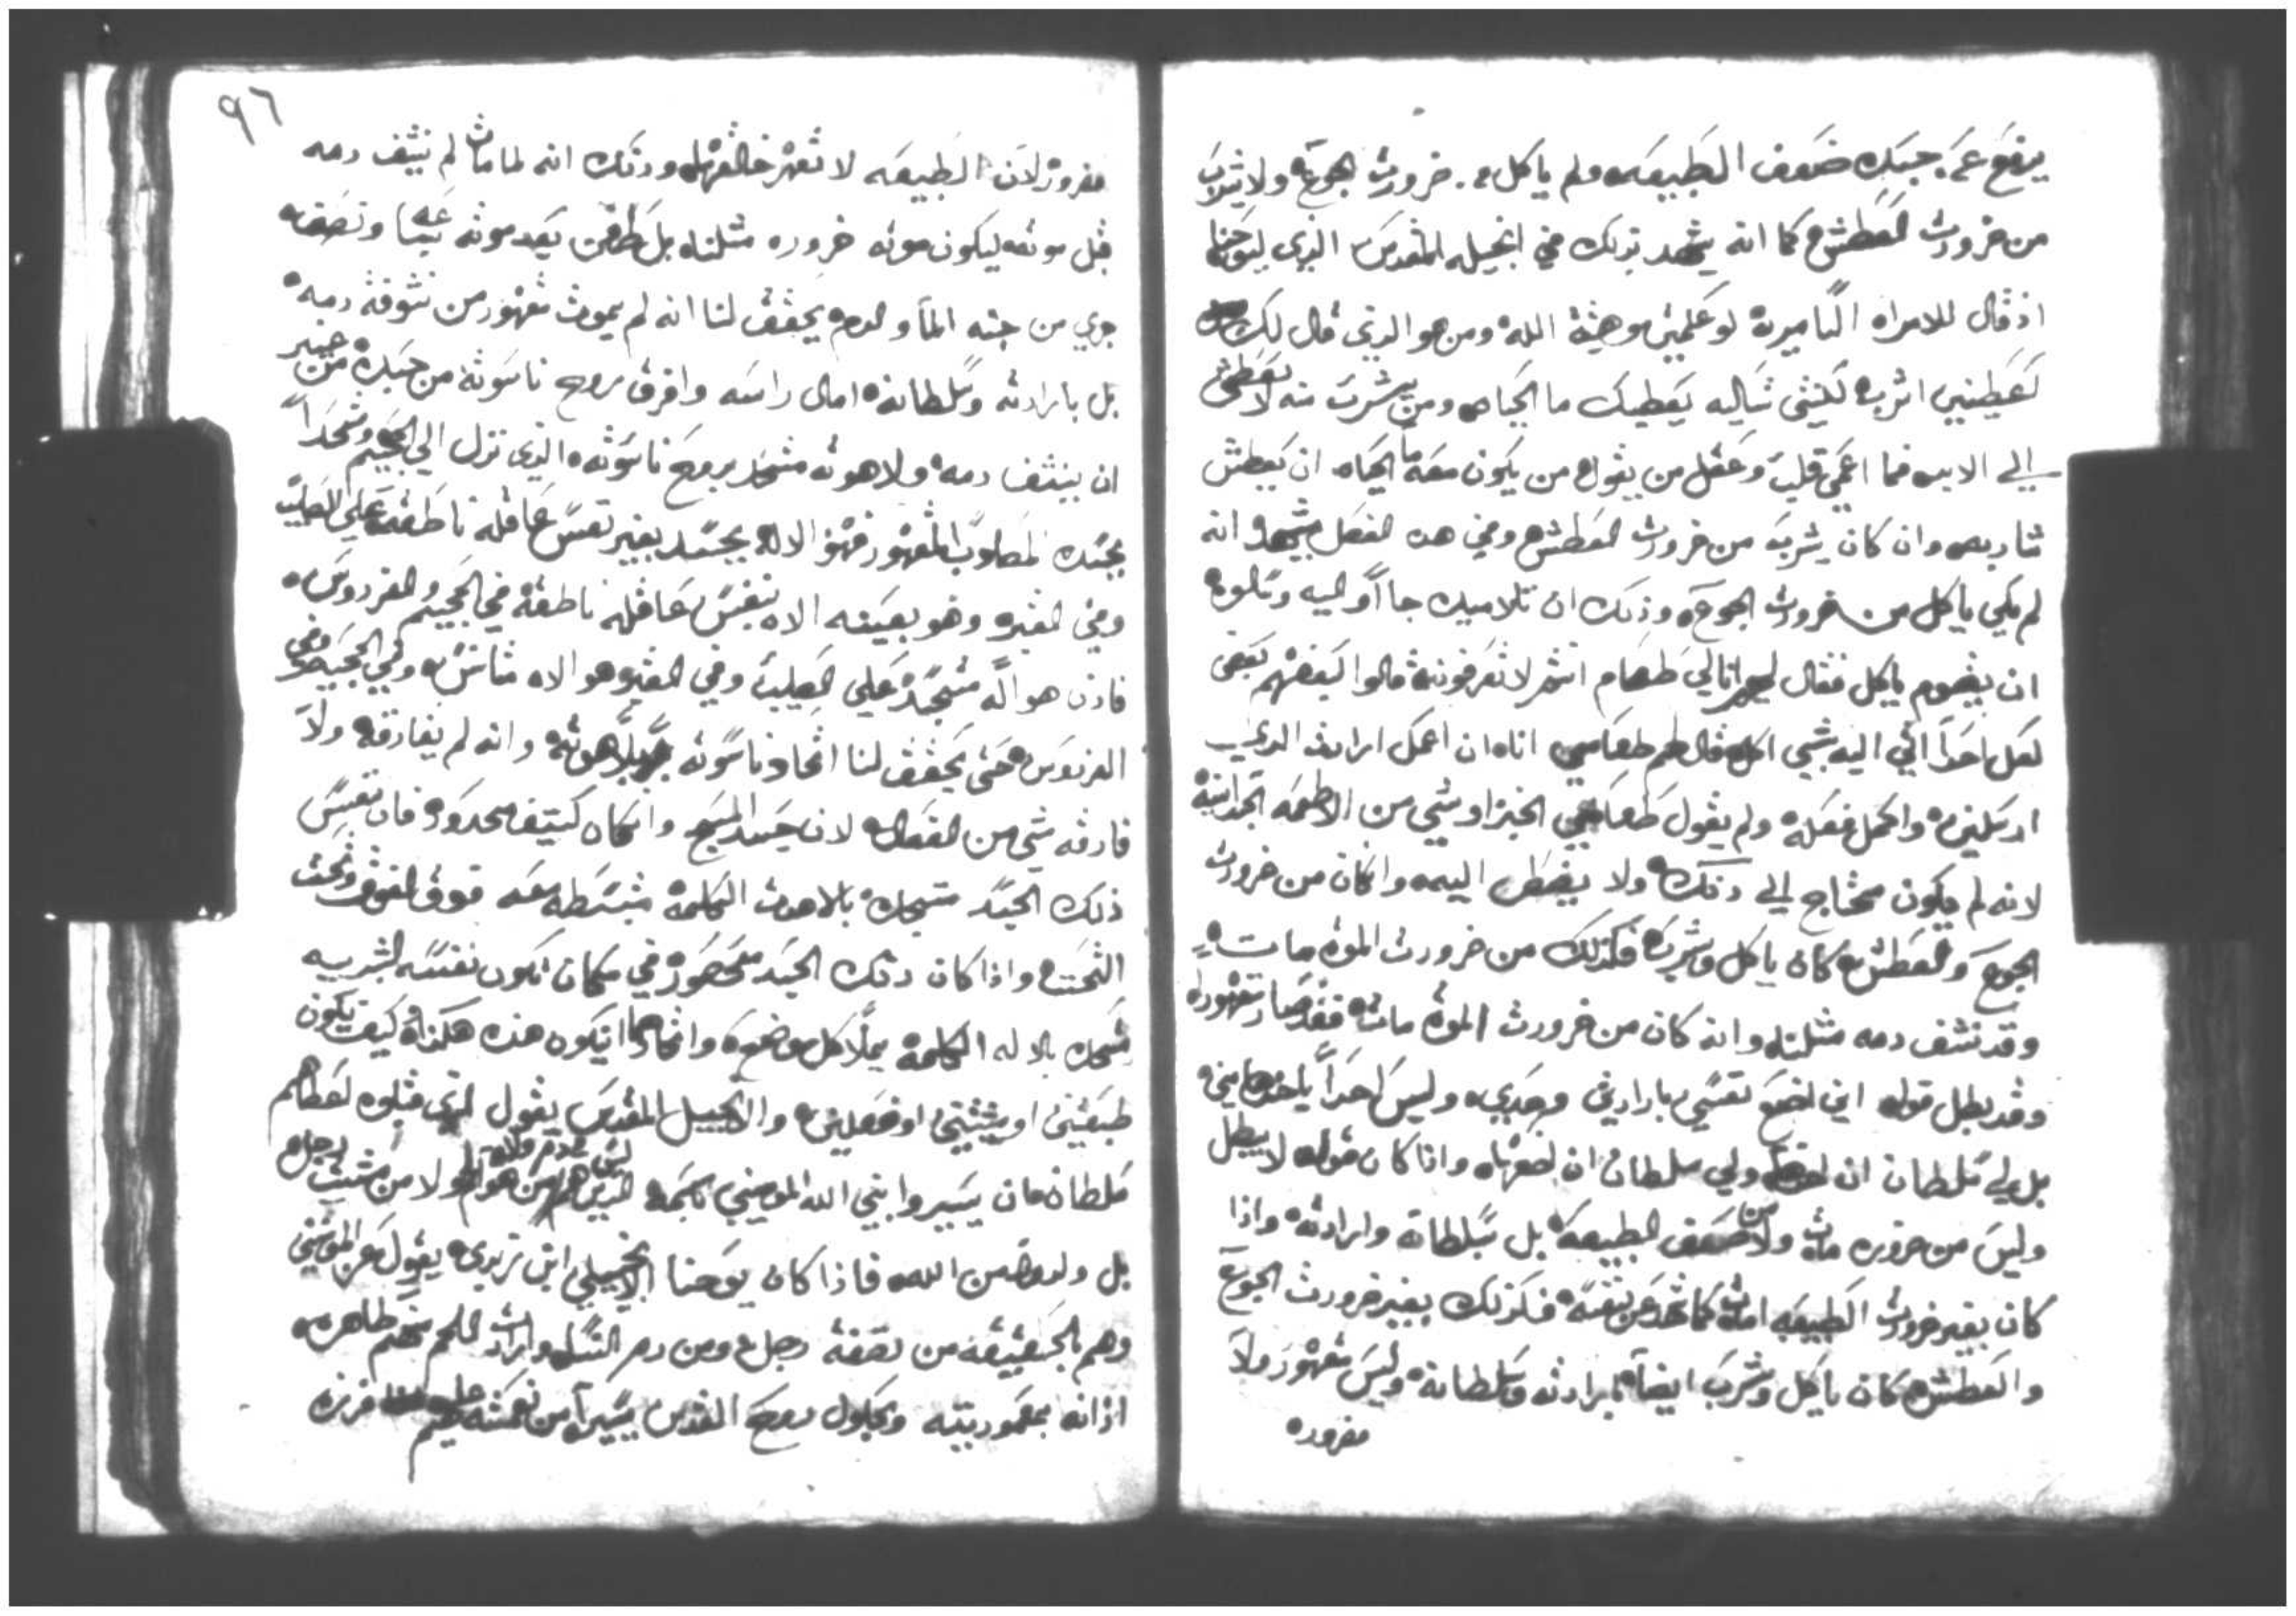 يرفع عن جسده ضعف الطبيعه ولم ياكل من ضرورت الجوع ولا يشرب
من ضرورت العطش كما انه يشهد بذلك في انجيله المقدس الذي ليوحنا
اذ قال للامراه السامريه لو علمتي موهبة الله ومن هو الذي قال لك
تعطيني اشرب لكنتي تساليه يعطيك ما الحياه ومن يشرب منه لا يعطش
الي الابد فما اعمي قلب وعقل من يقول من يكون معه ما الحياه ان يعطش
وان كان يشرب من ضرورت العطش وفي هده الفصل يشهد انه
لم يكن ياكل من ضرورت الجوع وذلك ان تلاميده جاأو اليه وسالوه
ان يقوم ياكل فقال لهم انا لي طعام انتم لا تعرفونه قالوا بعضهم بعض
لعل احدا اتي اليه بشي اكله قال لهم طعامي انا ان اعمل ارادت الدي
ارسلني واكمل فعله ولم يقول طعامي الخبز او شي من الاطعمه الجسدانيه
لانه لم يكون محتاج الي دلك ولا يضطر اليه واكان من ضرورت
الجوع والعطش كان ياكل ويشرب فكذلك من ضرورت الموت مات
وقد نشف دمه مثلنا وانه كان من ضرورت الموت مات فقد صار مقهورا
وقد بطل قوله اني اضع نفسي بارادتي وحدي وليس احدا ياخدها مني
بل لي سلطان ان اخدها ولي سلطان ان اضعها واذا كان قوله لا يبطل
وليس من ضروره مات ولا من ضعف الطبيعه بل بسلطانه وارادته واذا
كان بغير ضرورت الطبيعه امات كما شهد عن نفسه فكذلك بغير ضرورت الجوع
والعطش كان ياكل ويشرب ايضا بارادته وسلطانه وليس مقهور ولا
مضروره
٩٦
مضرور لان الطبيعه لا تقهر خالقها ودلك انه لما مات لم نشف دمه
قبل موته ليكون موته ضروره مثلنا بل طعن بعد موته
جري من جنبه الما والدم يحقق لنا انه لم يموت مقهور من نشوفة دمه
بل بارادته وسلطانه امال راسه وافرق روح ناسوته من جسده من غير
ان ينشف دمه ولاهوته متحد بروح ناسوته الذي نزل الي الجحيم ومتحدا
بجسده المصلوب المقهور فهو الاله بجسد بغير نفس عاقله ناطقه علي الصليب
وفي القبر وهو بعينه الاه بنفس عاقله ناطقه في الجحيم والفردوس
فاذن هو اله متجسد علي الصليب وفي القبر وهو الاه متانس وفي الجحيم وفي
الفردوس حتي يحقق لنا اتحاد ناسوته بلاهوته وانه لم يفارقه ولا
فارقه شي من الفعال لان جسد المسيح واكان كتيف محدود فان نفس
ذلك الجسد متحده بالاهوت الكلمة منبسطه معه فوق الفوق وتحت
التحت واذا كان دلك الجسد محصور في مكان تكون نفسه البشريه
متحده بالاله الكلمة يملا كل موضع واتحادهما ايكون هذه هكذا كيف يكون
طبعتين او مشيتين او فعلين والانجيل المقدس يقول الذي قبلوه اعطاهم
سلطان ان يسيروا بني الله المومنين باسمه الدين ليس هم من دم ولا من هوا لحم ولا من مشيت رجل
بل ولدوا من الله فاذا كان يوحنا الانجيلي ابن زبدي يقول عن المومنين
وهم بالحقيقه من نطفة رجل ومن دم النسا وارادت اللحم منهم ظاهره
اذ انه بمعموديته وبحلول روح القدس